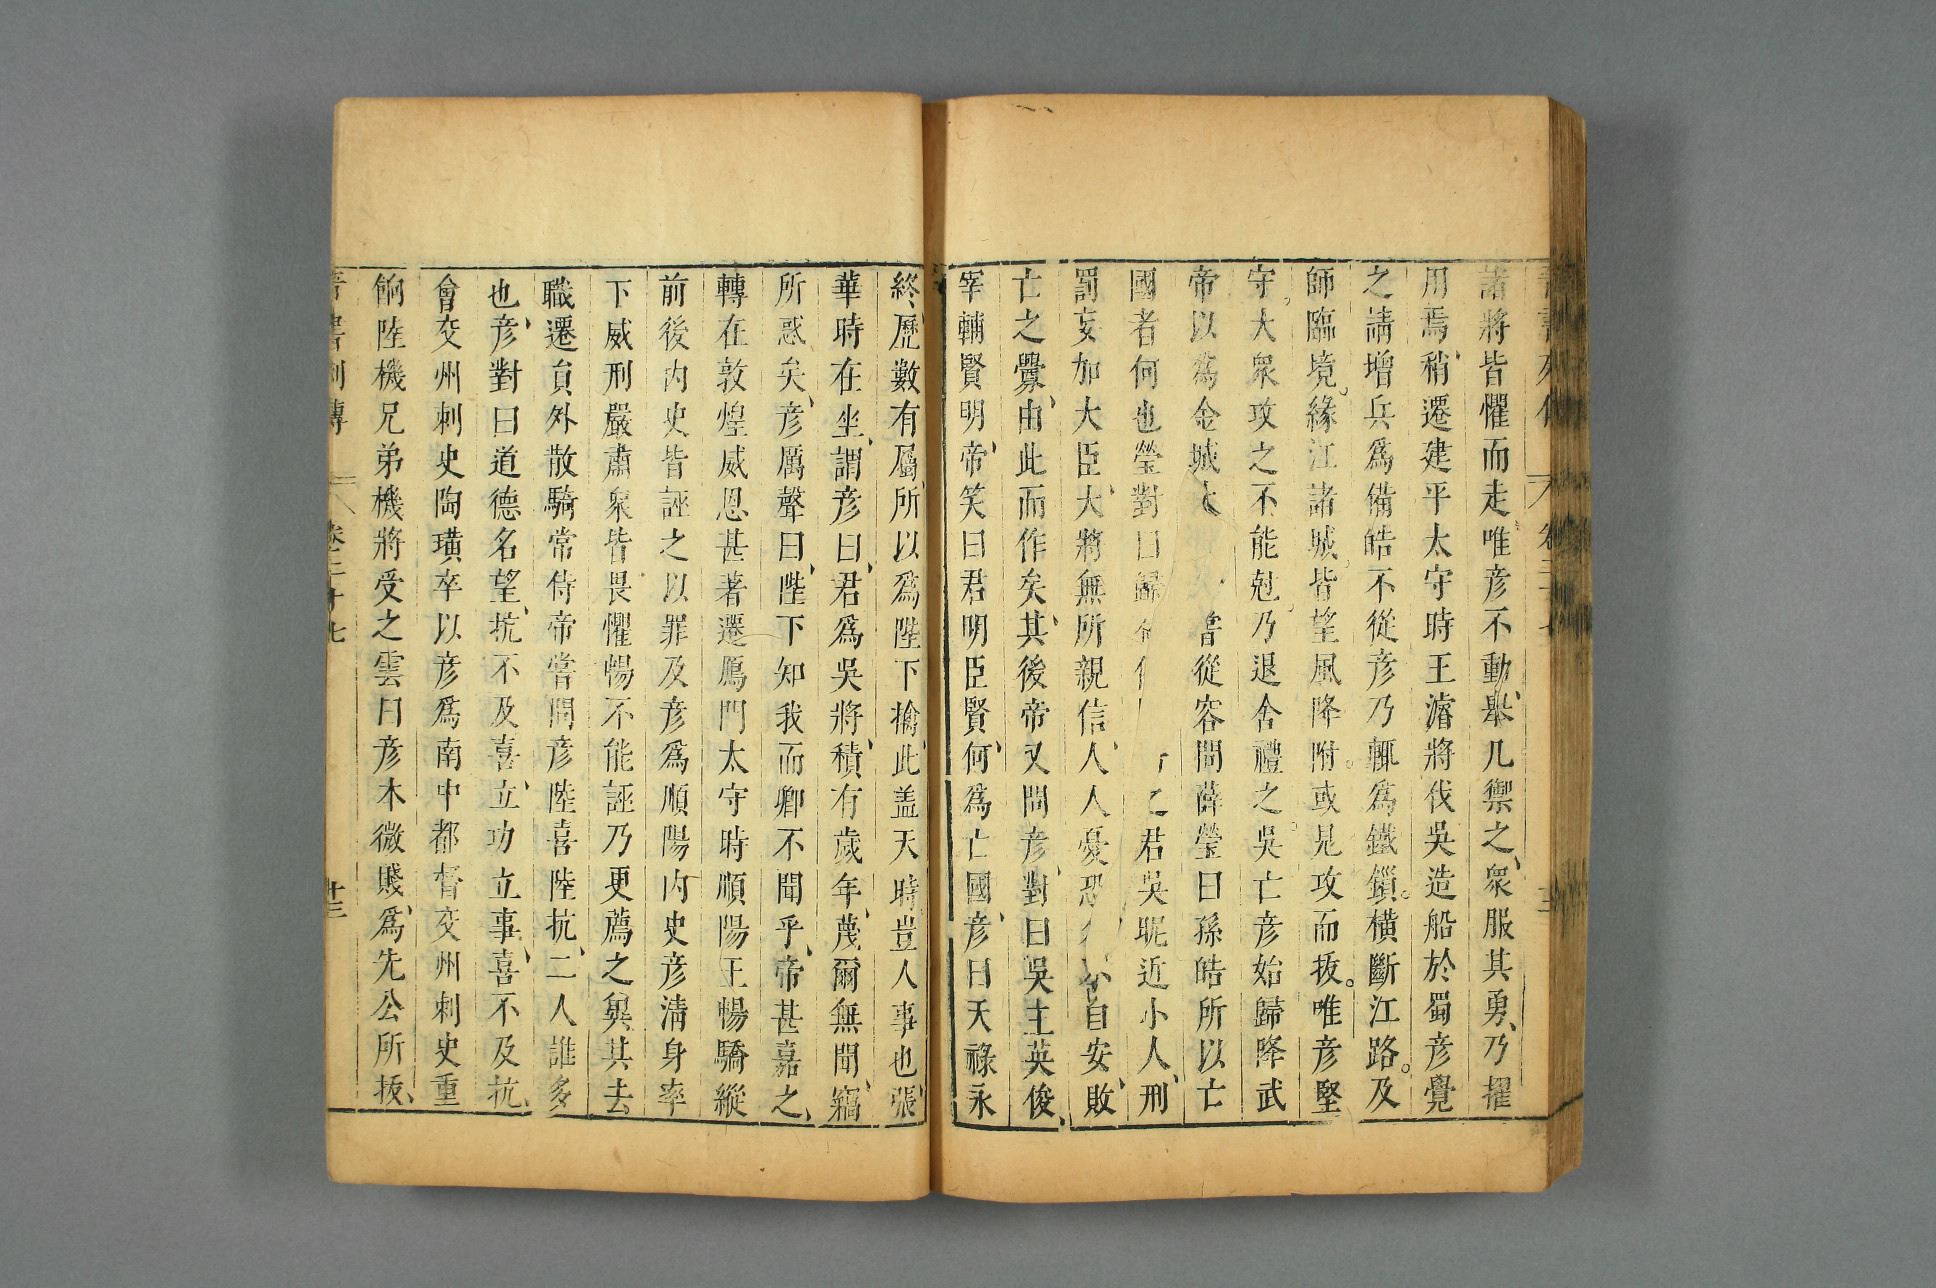 諸將皆懼而走唯彦不動舉几禦之衆服其勇乃擢
用焉稍遷建平太守時王濬將伐吳造船於蜀彦覺
之請增兵爲備皓不從彦乃輒爲鐵鎖橫斷江路及
師臨境緣江諸城皆望風降附或見攻而拔唯彦堅
守大衆攻之不能尅乃退舍禮之吳亡彦始歸降武
帝以爲金城太從容問薛瑩曰孫皓所以亡
國者何也瑩對曰歸君吳昵近小人刑
罰妄加大臣大將無所親信人人憂恐自安敗
亡之釁由此而作矣其後帝又問彦對曰吳主英俊
宰輔賢明帝笑曰君明臣賢何爲亡國彦曰天祿永
終歷數有屬所以爲陛下擒此盖天時豈人事也張
華時在坐謂彦曰君爲吳將積有歲年蔑爾無聞竊
所惑矣彦厲聲曰陛下知我而卿不聞乎帝甚嘉之
轉在敦煌威恩甚著遷鴈門太守時順陽王暢驕縱
前後內史皆誣之以罪及彦爲順陽內史彦清身率
下威刑嚴肅衆皆畏懼暢不能誣乃更薦之兾其去
職遷貟外散騎常侍帝嘗問彦陸喜陸抗二人誰多
也彦對曰道德名望抗不及喜立功立事喜不及抗
會交州刺史陶璜卒以彦爲南中都督交州刺史重
餉陸機兄弟機將受之雲曰彦木微賤爲先公所拔
晋書列傳 卷二十七 十三